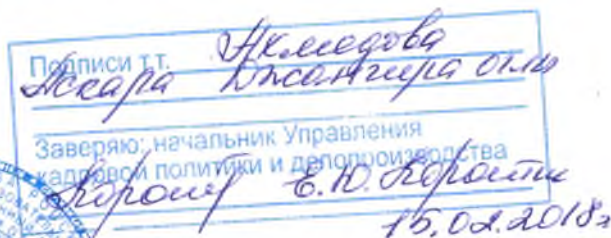 Подписи т.т. Ахмедова
Аскара Джангира оглы
Заверяю: начальник Управления
кадровой политики и делопроизводства
Е.Ю. Коротик
15.02.2018г